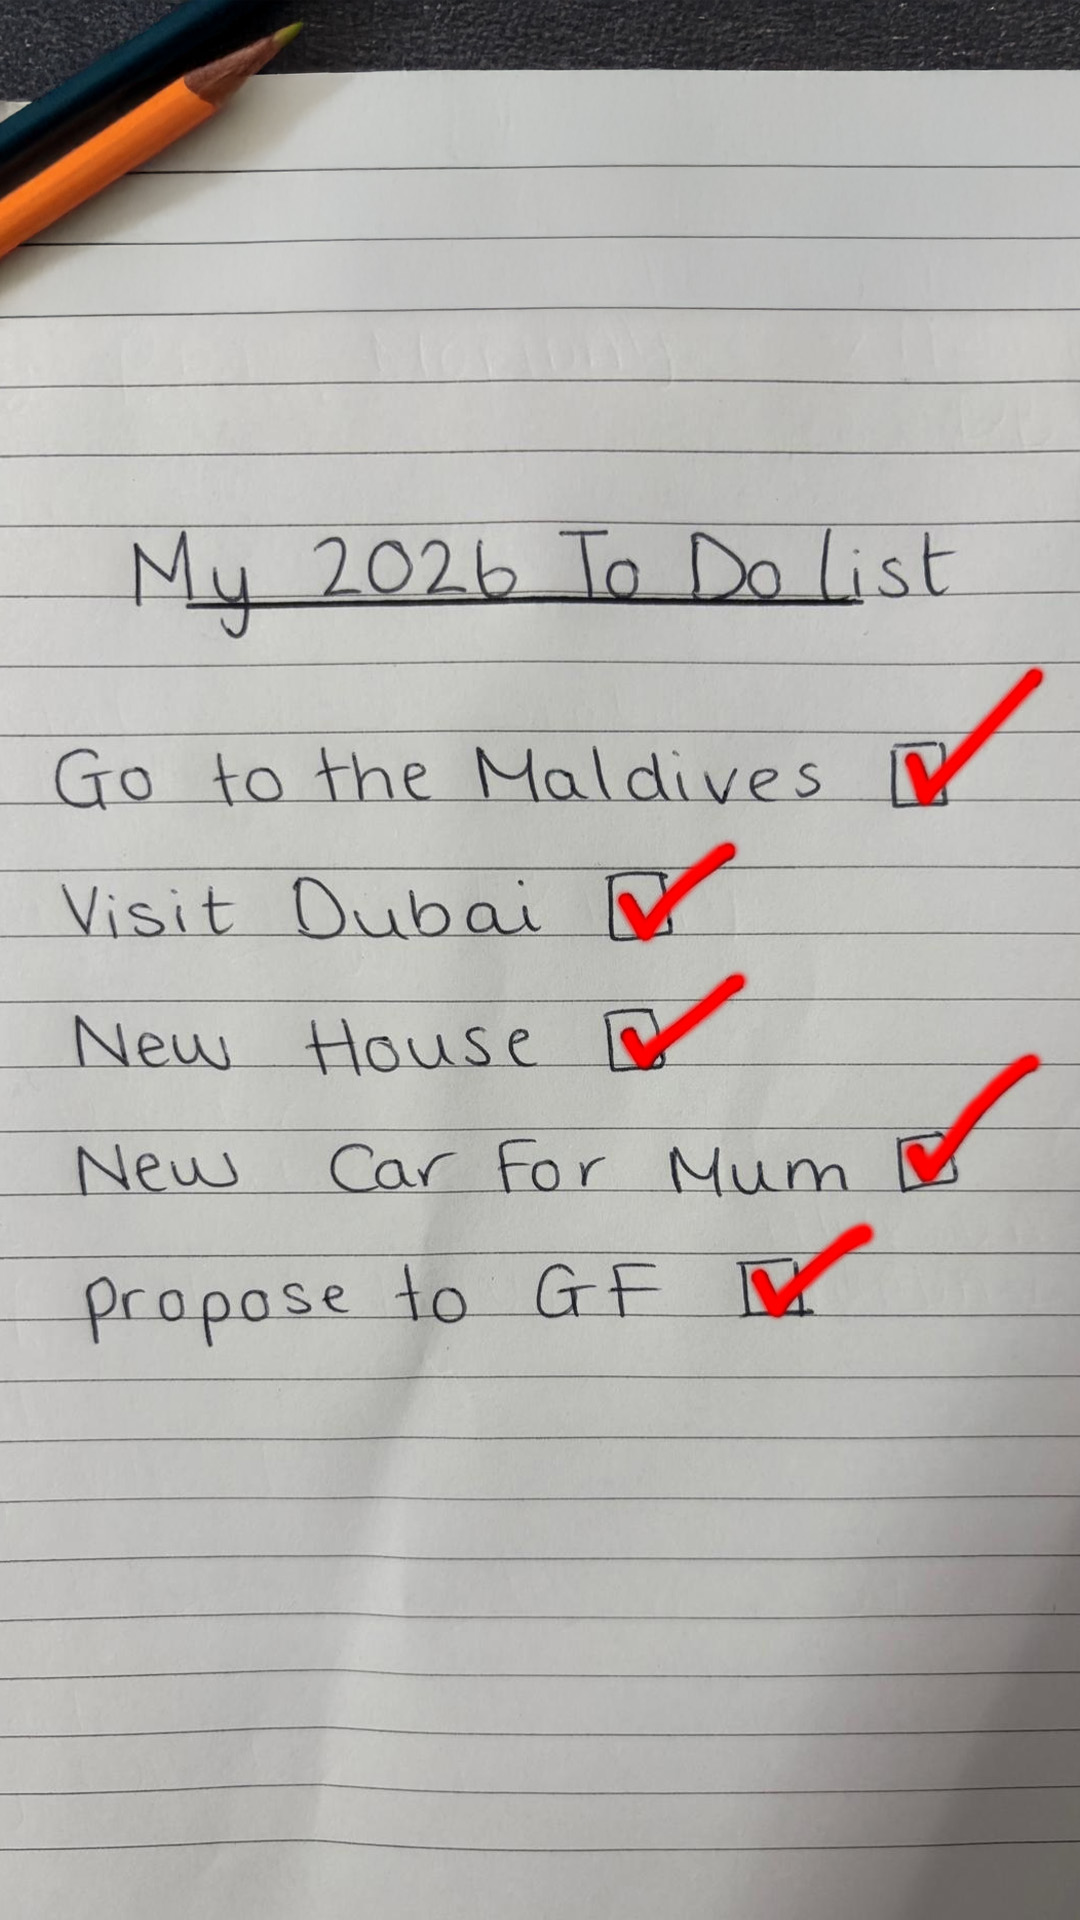 My 2026 To Do List
Go to the Maldives
Visit Dubai
New House
New Car For Mum
propose to GF